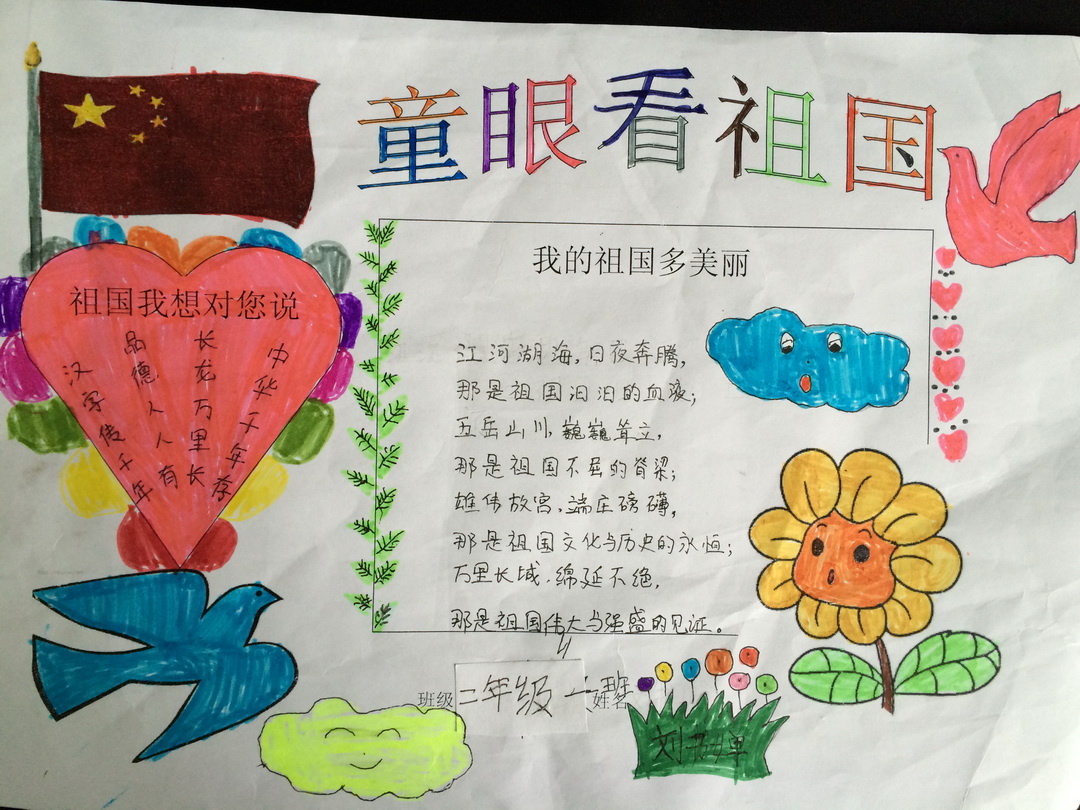 童眼看祖国
祖国我想对您说
中华千年存
长龙万里长
品德人人有
汉字传千年
我的祖国多美丽
江河湖海,日夜奔腾,
那是祖国汩汩的血液;
五岳山川,巍巍耸立,
那是祖国不屈的脊梁;
雄伟故宫,端庄磅礴,
那是祖国文化与历史的永恒;
万里长城,绵延不绝,
那是祖国伟大与强盛的见证。
班级 二年级 一班 姓名
刘书